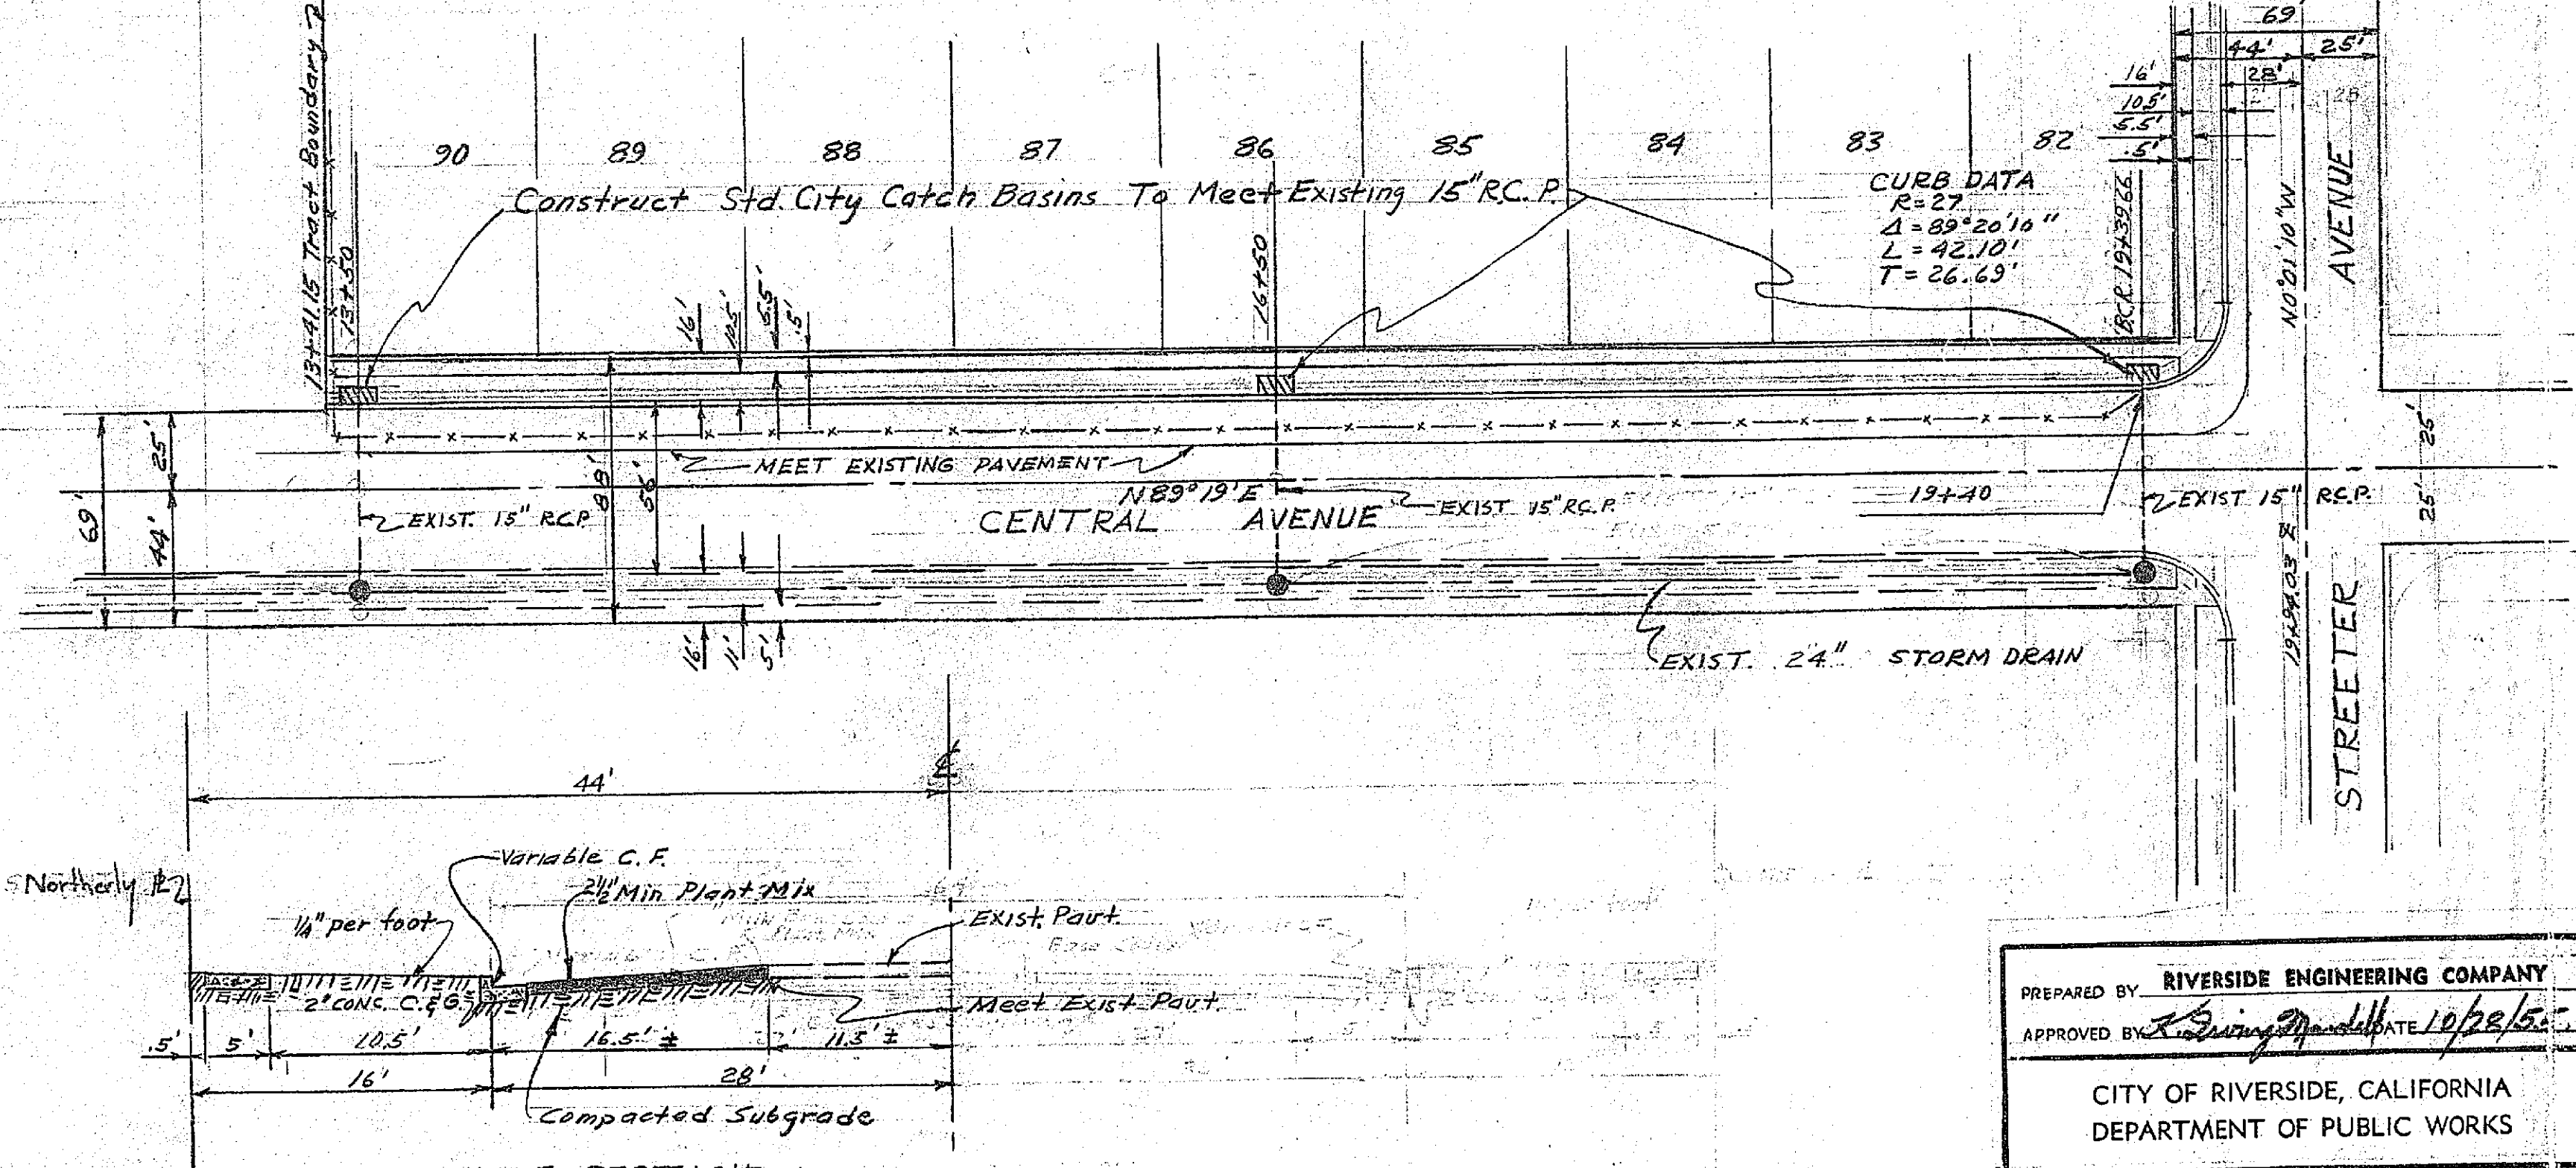 13+41.15 Tract Boundary
13+50
90
89
88
87
86
85
84
83
82
Construct Std. City Catch Basins To Meet Existing 15" R.C.P.
16+50
CURB DATA
R=27'
Δ=89°20'10"
L=42.10'
T=26.69'
B.C.R. 19+39.66
69'
44'
25'
28'
16'
10.5'
5.5'
.5'
N0°01'10"W
AVENUE
16'
10.5'
5.5'
.5'
25'
69'
44'
88'
56'
MEET EXISTING PAVEMENT
N89°19'E
EXIST. 15" R.C.P.
CENTRAL AVENUE
EXIST 15" R.C.P.
19+40
EXIST 15" R.C.P.
25'
25'
16'
11'
5'
EXIST. 24" STORM DRAIN
19+94.03 ℄
STREETER
44'
℄
Northerly ℄
Variable C.F.
2½" Min Plant Mix
¼" per foot
Exist. Pavt.
2" CONC. C.&G.
Meet Exist Pavt.
.5'
5'
10.5'
16.5' ±
11.5' ±
16'
28'
Compacted Subgrade
PREPARED BY RIVERSIDE ENGINEERING COMPANY
APPROVED BY DATE 10/28/55
CITY OF RIVERSIDE, CALIFORNIA
DEPARTMENT OF PUBLIC WORKS